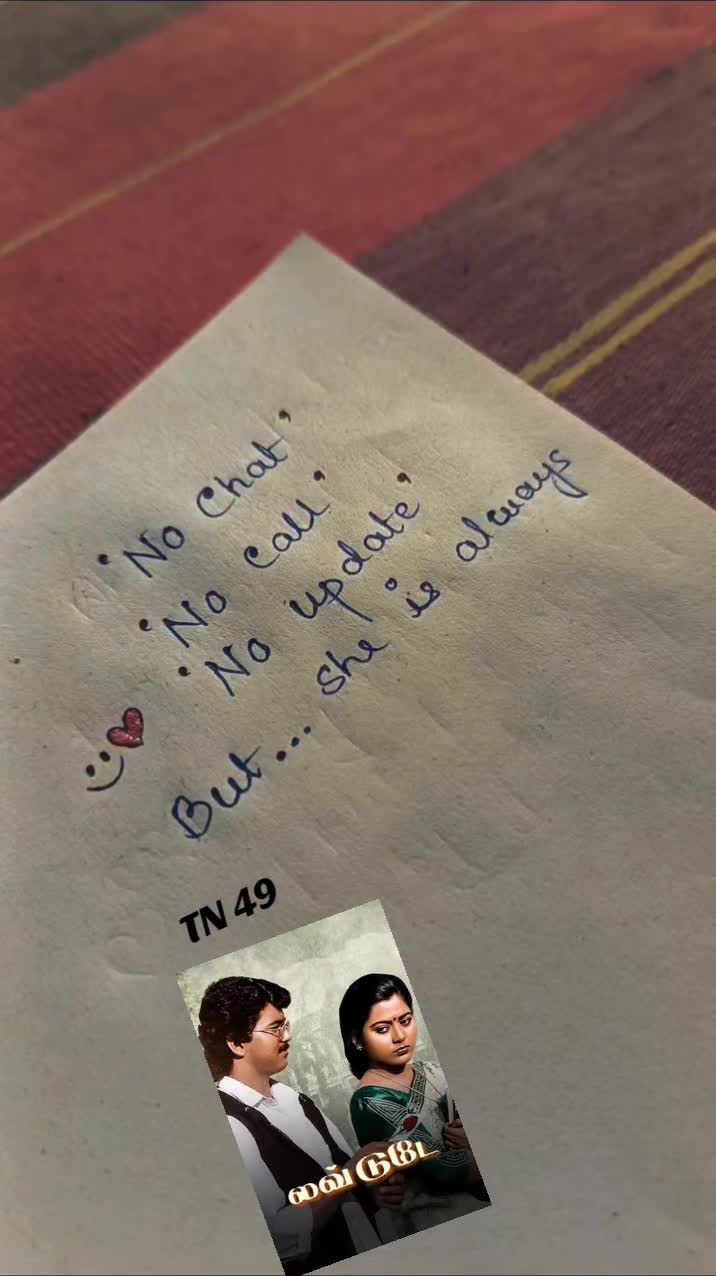 'No Chat'
'No call'
'No update'
But... she is always
TN 49
லவ் டுடே